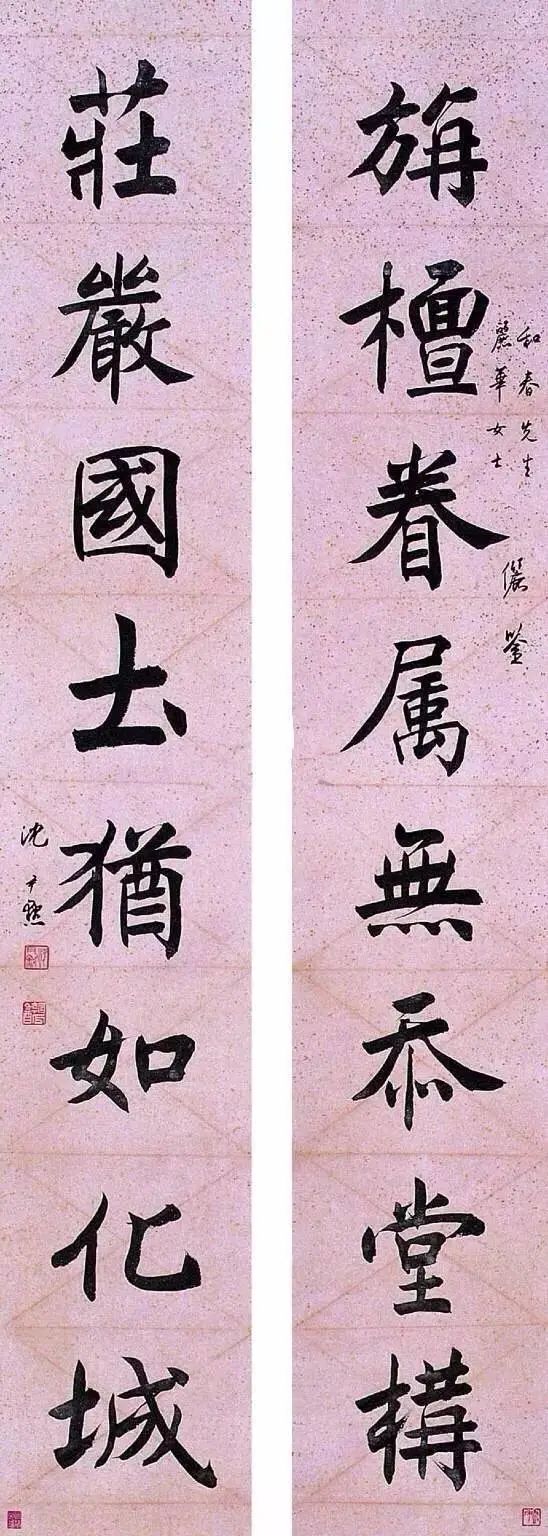 旃檀眷属無忝堂構
和春先生
麗華女士
儷鉴
莊嚴國土猶如化城
沈尹默